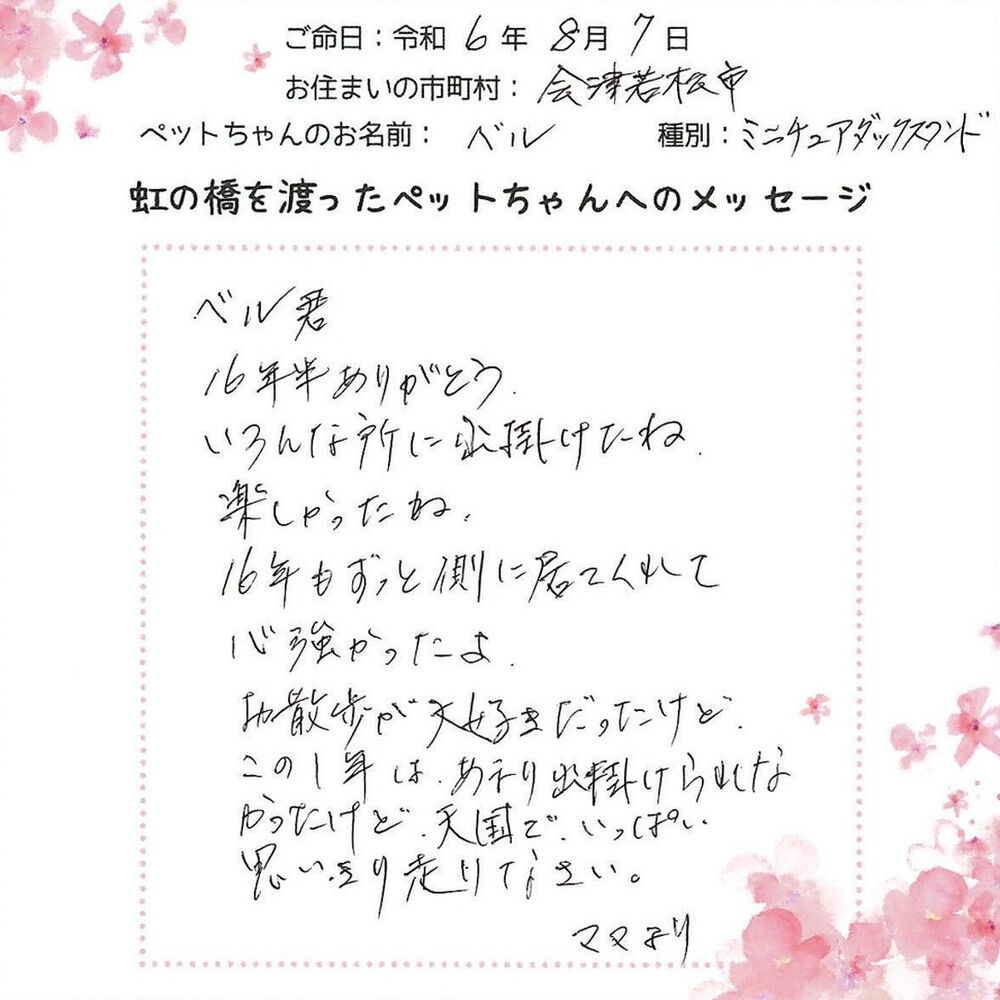 ご命日：令和 6 年 8 月 7 日
お住まいの市町村： 会津若松市
ペットちゃんのお名前： ベル 種別：ミニチュアダックスフンド
虹の橋を渡ったペットちゃんへのメッセージ
ベル君
16年半ありがとう.
いろんな所に出掛けたね.
楽しかったね.
16年もずっと側に居てくれて
心強かったよ.
お散歩が大好きだったけど.
この1年は.あまり出掛けられな
かったけど.天国で.いっぱい
思いきり走りなさい。
ママより